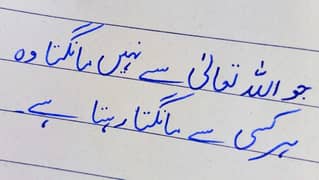 جو اللہ تعالیٰ سے نہیں مانگتا وہ
ہر کسی سے مانگتا رہتا ہے۔